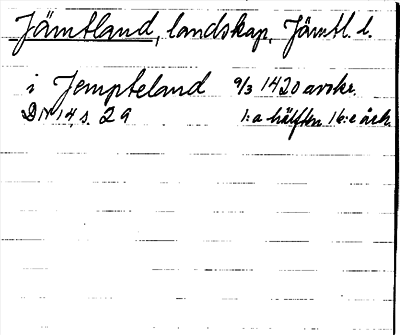 Jämtland, landskap, Jämtl. l.
i Jempteland 9/3 1420 avskr.
DN 14, s. 29 1:a hälften 16:e årh.